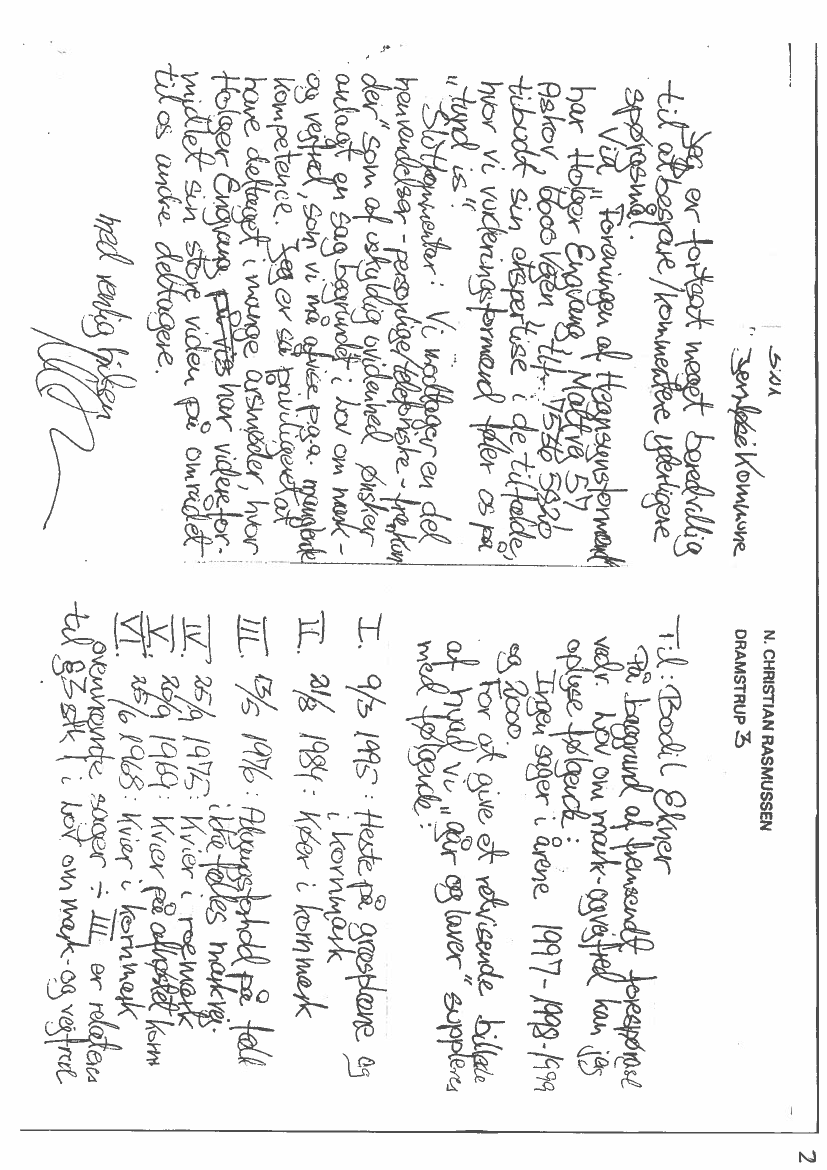 N. CHRISTIAN RASMUSSEN
DRAMSTRUP 3
Til: Bodil Ekner
På baggrund af fremsendt forespørgsel
vedr. lov om mark- og vejfred kan jeg
oplyse følgende:
Ingen sager i årene 1997-1998-1999
og 2000.
For at give et retvisende billede
af hvad vi "går og laver" suppleres
med følgende:
I. 9/3 1995: Heste på græsplæne og
i kornmark
II. 21/8 1984: Køer i kornmark
III. 13/5 1976: Adgangsforhold på fælles
ikke fælles markvej.
IV. 25/9 1975: Kvier i roemark
V. 20/9 1969: Kvier på afhøstet korn
VI. 25/6 1968: Kvier i kornmark
ovennævnte sager ÷ III er relateres
til §3 stk 1 i lov om mark- og vejfred
Kommune
Jeg er fortsat meget beredvillig
til at besvare/kommentere yderligere
spørgsmål.
Via "Foreningen af Hegnsynsformænd
har Holger Engvang, Maltvej 57
Askov 6600 Vejen tlf. 7536 5820
tilbudt sin ekspertise i de tilfælde,
hvor vi vurderingsformænd føler os på
"tynd is".
Slutkommentar: Vi modtager en del
henvendelser - personlige/telefoniske - fra kun
der" som af uskyldig uvidenhed ønsker
anlagt en sag begrundet i lov om mark-
og vejfred, som vi må afvise pga. manglende
kompetence. Jeg er så priviligeret at
have deltaget i mange årsmøder, hvor
Holger Engvang har videre for-
midlet sin store viden på området
til os andre deltagere.
med venlig hilsen
2